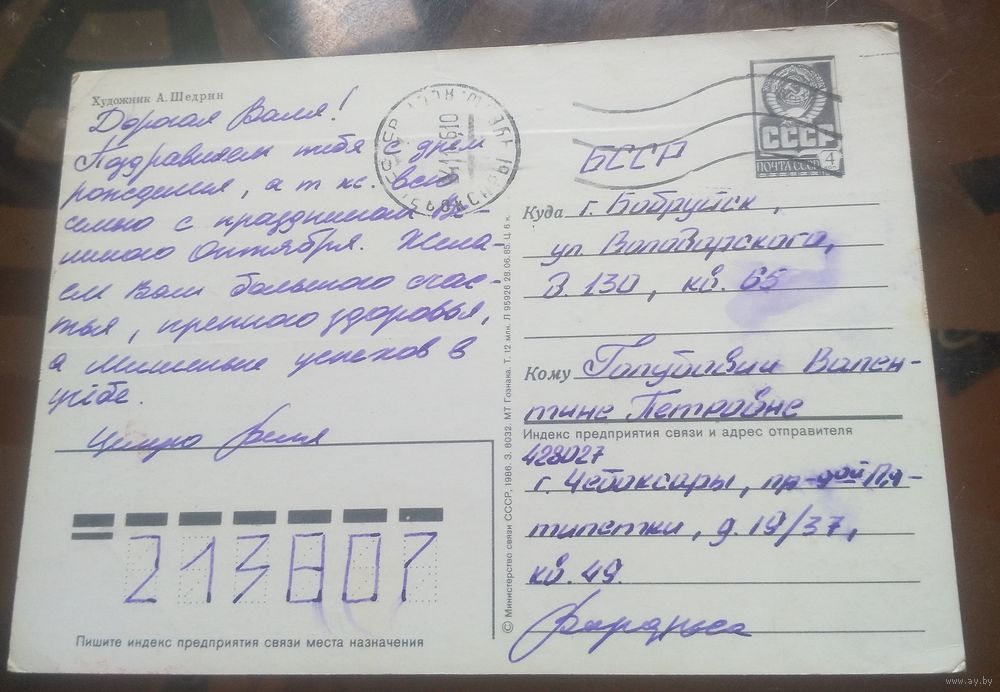 Художник А. Щедрин
Дорогая Валя!
Поздравляем тебя с днем
рождения, а т кс. всю
семью с праздником Ве-
ликого Октября. Жела-
ем Вам большого счас-
тья, крепкого здоровья,
а милые успехов в
учебе.
Целую
СССР
ПОЧТА СССР
4
БССР
Куда г. Бобруйск,
ул. Володарского,
д. 130, кв. 65
Кому Голубович Вален-
тине Петровне
Индекс предприятия связи и адрес отправителя
428027
г. Чебоксары, пр-9ой Пя-
тилетки, д. 19/37,
кв. 49.
213807
Пишите индекс предприятия связи места назначения
© Министерство связи СССР, 1986. З. 8032. МТ Гознака. Т. 12 млн. Л 95928 28.06.85. Ц. 6 к.
www.ay.by